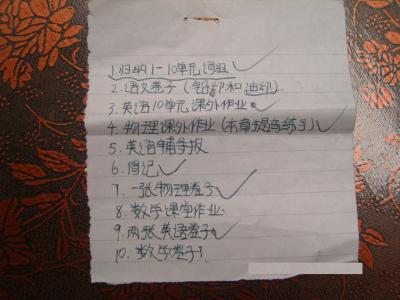 1.归纳1-10单元词组
2.语文卷子(铅印和油印)
3.英语10单元课外作业.
4.物理课外作业(本章提高练习)
5.英语辅导报
6.周记
7.一张物理卷子
8.数学课堂作业.
9.两张英语卷子.
10.数学卷子1